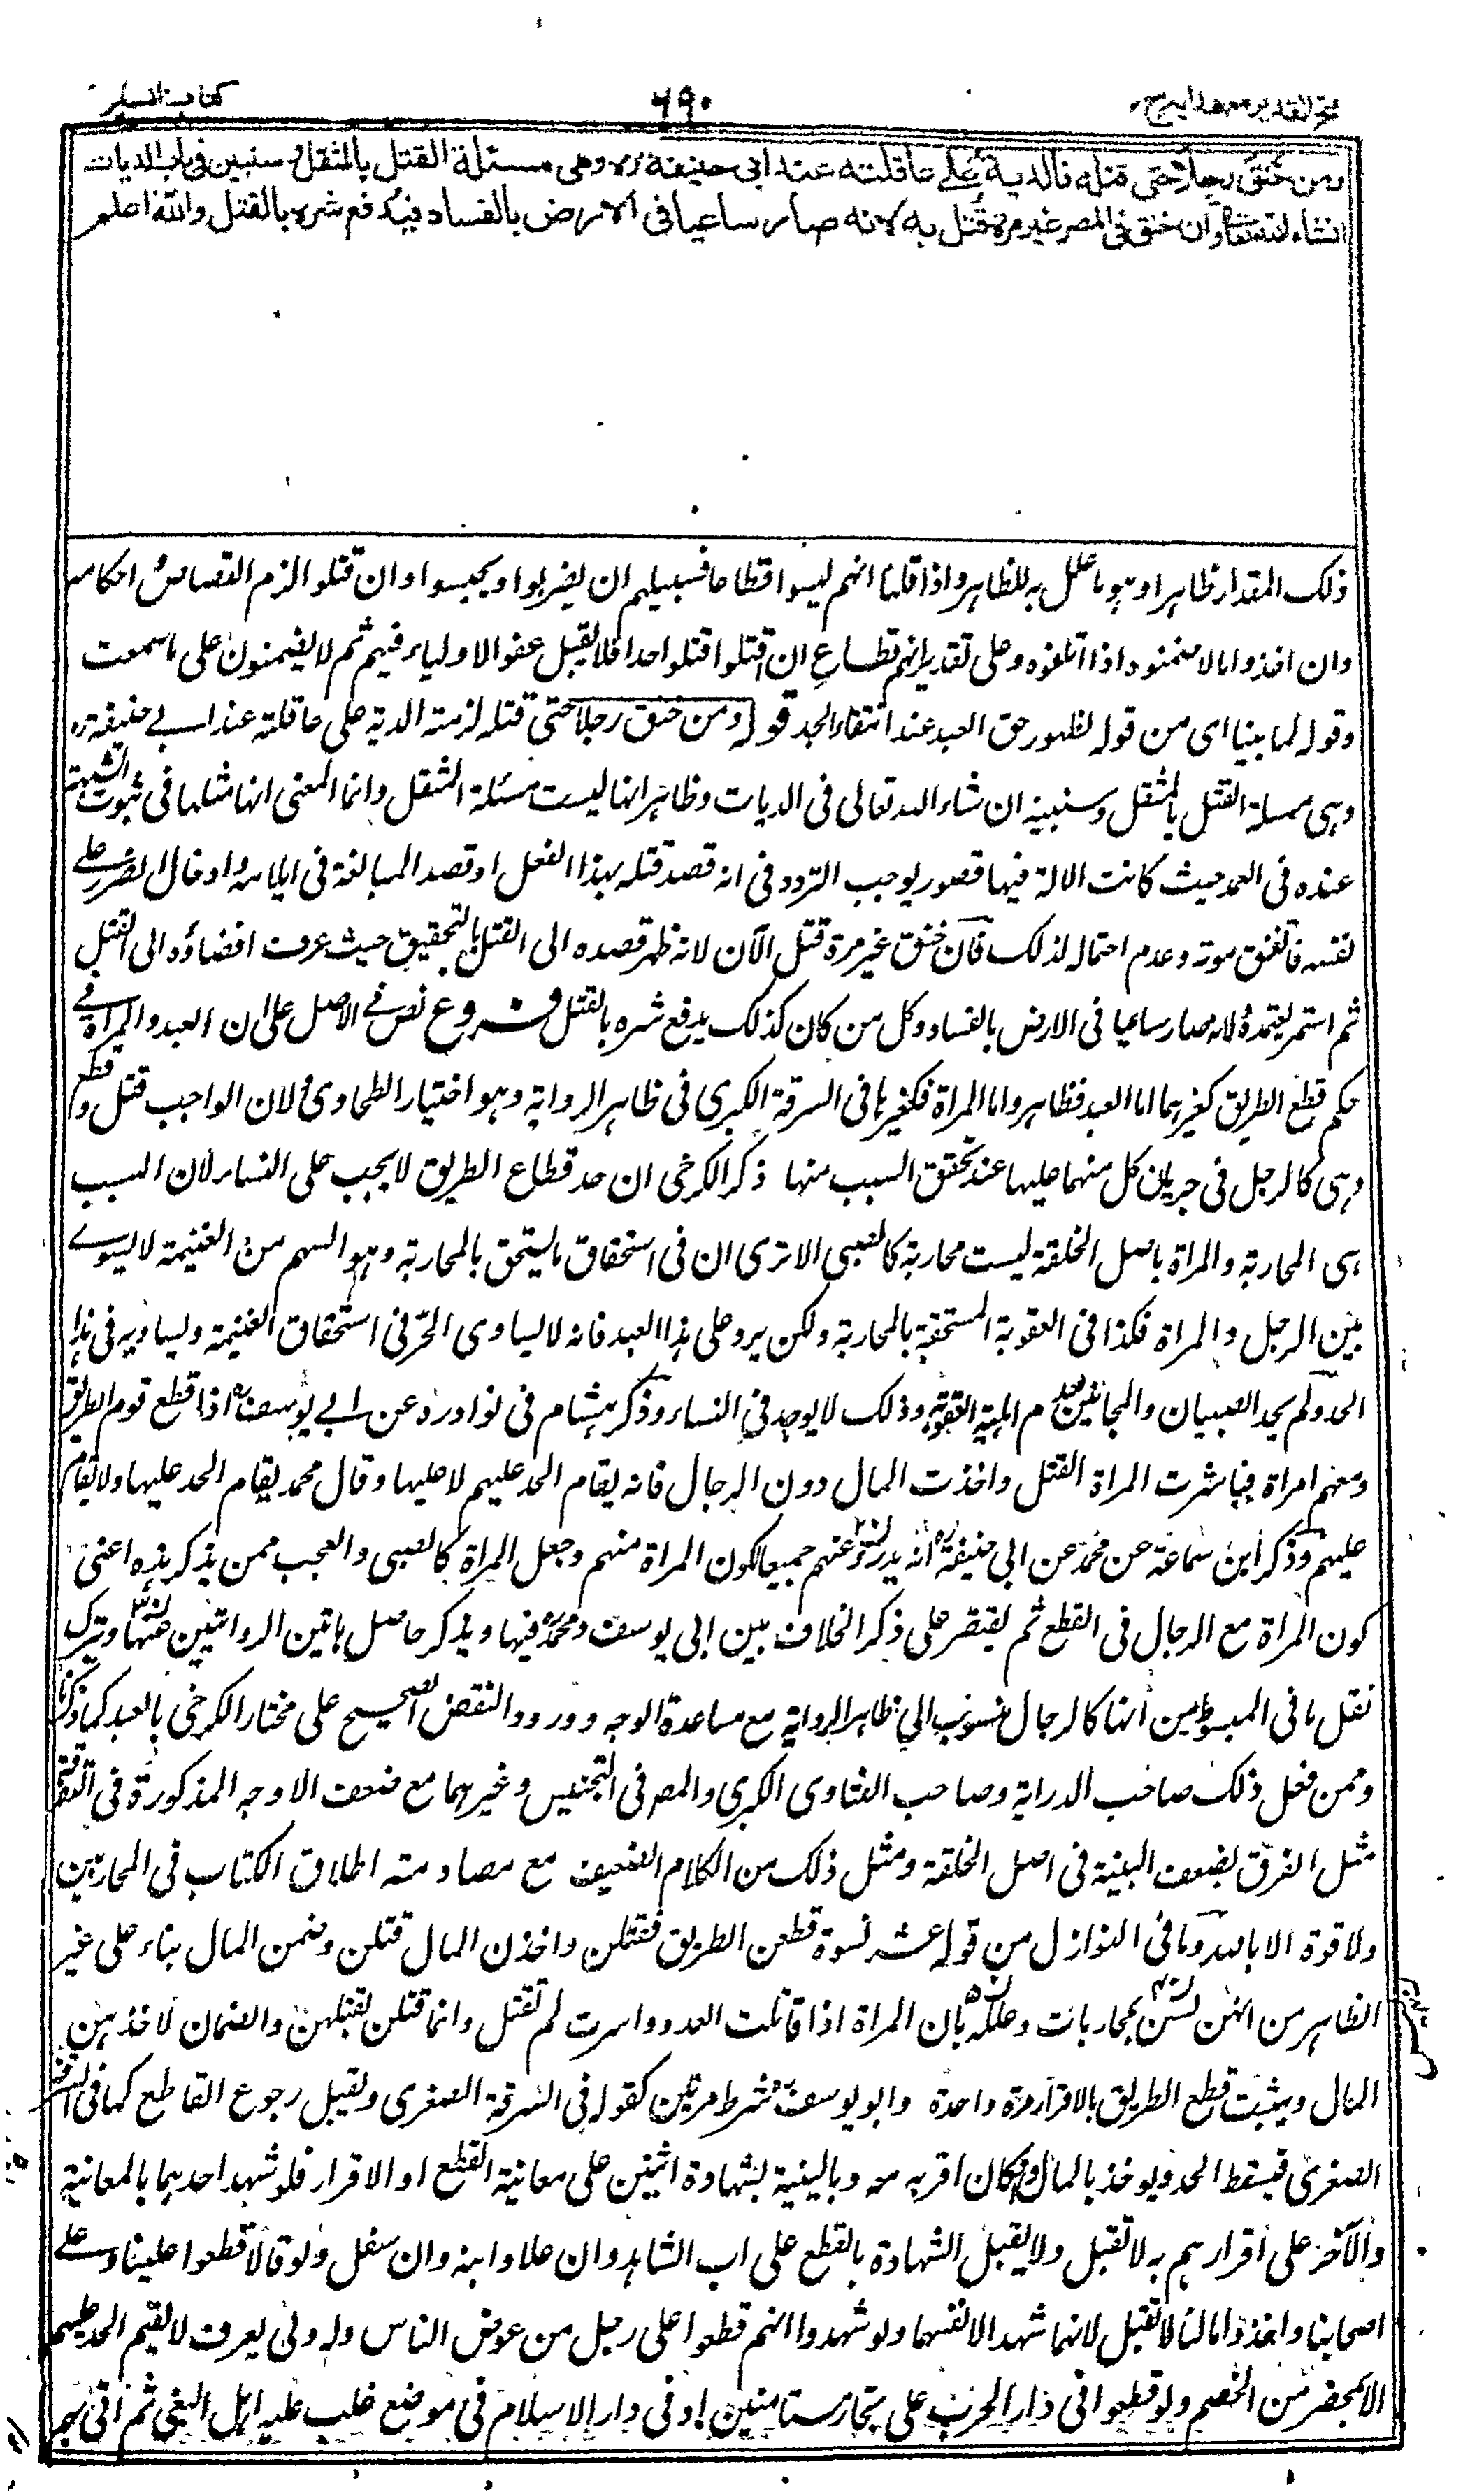 فتح القدير مع هدايه ج ٢
٦٩٠
كتاب السير
ومن خنق رجلا حتى قتله فالدية على عاقلته عند ابى حنيفة رح وهى مسئلة القتل بالمثقل وسنبين فى باب الديات
انشاء الله تعالى وان خنق فى المصر غير مرة قتل به لانه صار ساعيا فى الارض بالفساد فيدفع شره بالقتل والله اعلم
ذلك المقدار ظاهرا وهو ما علل به للظاهر واذا قلنا انهم ليسوا قطاعا فسبيلهم ان يضربوا ويحبسوا وان قتلوا لزم القصاص احكامه
وان اخذوا مالا ضمنوه اذا اتلفوه وعلى تقدير انهم قطاع ان قتلوا قتلوا حدا فلا يقبل عفو الاولياء فيهم ثم لا يضمنون على ما سمعت
وقوله لما بينا اى من قوله لظهور حق العبد عند انتفاء الحد قوله ومن خنق رجلا حتى قتله لزمته الدية على عاقلته عند ابي حنيفة رح
وهى مسئلة القتل بالمثقل وسنبينه ان شاء الله تعالى فى الديات وظاهر انها ليست مسئلة المثقل وانما المعنى انها مثلها فى ثبوت الشبهة
عنده فى العمد حيث كانت الالة فيها قصور يوجب التردد فى انه قصد قتله بهذا الفعل او قصد المبالغة فى ايلامه وادخال الضرر على
نفسه فاتفق موته وعدم احتماله لذلك فان خنق غير مرة قتل الآن لانه ظهر قصده الى القتل بالتحقيق حيث عرف افضاؤه الى القتل
ثم استمر يعتمده لانه صار ساعيا فى الارض بالفساد وكل من كان كذلك يدفع شره بالقتل فروع نص في الاصل على ان العبد والمراة في
حكم قطع الطريق كغيرهما اما العبد فظاهر واما المراة فكغيرها فى السرقة الكبرى فى ظاهر الرواية وهو اختيار الطحاوى لان الواجب قتل وقطع
وهى كالرجل فى جريان كل منهما عليها عند تحقق السبب منها ذكر الكرخى ان حد قطاع الطريق لا يجب على النساء لان السبب
هى المحاربة والمراة باصل الخلقة ليست محاربة كالصبى الا ترى ان فى استحقاق ما يستحق بالمحاربة وهو السهم من الغنيمة لا يسوى
بين الرجل والمراة فكذا فى العقوبة المستحقة بالمحاربة ولكن يرد على هذا العبد فانه لا يساوى الحر فى استحقاق الغنيمة ويساويه فى هذا
الحد ولم يحد الصبيان والمجانين لعدم اهلية العقوبة وذلك لا يوجد فى النساء وذكر هشام فى نوادره عن ابي يوسف رح اذا قطع قوم الطريق
ومعهم امراة فباشرت المراة القتل واخذت المال دون الرجال فانه يقام الحد عليهم لا عليها وقال محمد يقام الحد عليها ولا يقام
عليهم وذكر ابن سماعة عن محمد عن ابى حنيفة رح انه يدرأ عنهم جميعا لكون المراة منهم وجعل المراة كالصبى والعجب ممن يذكر هذه اعنى
كون المراة مع الرجال فى القطع ثم يقتصر على ذكر الخلاف بين ابى يوسف ومحمد فيها ويذكر حاصل هاتين الروايتين عنهما ويترك
نقل ما فى المبسوط من انها كالرجال منسوب الى ظاهر الرواية مع مساعدة الوجه وورود النقض الصحيح على مختار الكرخى بالعبد كما ذكرنا
وممن فعل ذلك صاحب الدراية وصاحب الفتاوى الكبرى والمص فى التجنيس وغيرهما مع ضعف الاوجه المذكورة فى التفرقة
مثل الفرق بضعف البنية فى اصل الخلقة ومثل ذلك من الكلام الضعيف مع مصادمته اطلاق الكتاب فى المحاربين
ولا قوة الا بالله وما فى النوازل من قوله عشر نسوة قطعن الطريق فقتلن واخذن المال قتلن وضمن المال بناء على غير
الظاهر من انهن لسن بمحاربات وعلله بان المراة اذا قاتلت العدو واسرت لم تقتل وانما قتلن بقتلهن والضمان لاخذهن
المال ويثبت قطع الطريق بالاقرار مرة واحدة وابو يوسف رح شرط مرتين كقوله فى السرقة الصغرى ويقبل رجوع القاطع كما فى السرقة
الصغرى فيسقط الحد ويوخذ بالمال ان كان اقر به معه وبالبينة بشهادة اثنين على معاينة القطع او الاقرار فلو شهد احدهما بالمعاينة
والآخر على اقرارهم به لا تقبل ولا يقبل الشهادة بالقطع على اب الشاهد وان علا وابنه وان سفل ولو قالا قطعوا علينا وعلى
اصحابنا واخذوا مالنا لا تقبل لانهما شهدا لانفسهما ولو شهدوا انهم قطعوا على رجل من عرض الناس وله ولى يعرف لا يقيم الحد عليهم
الا بمحضر من الخصم ولو قطعوا فى دار الحرب على تجار مستامنين او فى دار الاسلام فى موضع غلب عليه اهل البغى ثم اتى بهم